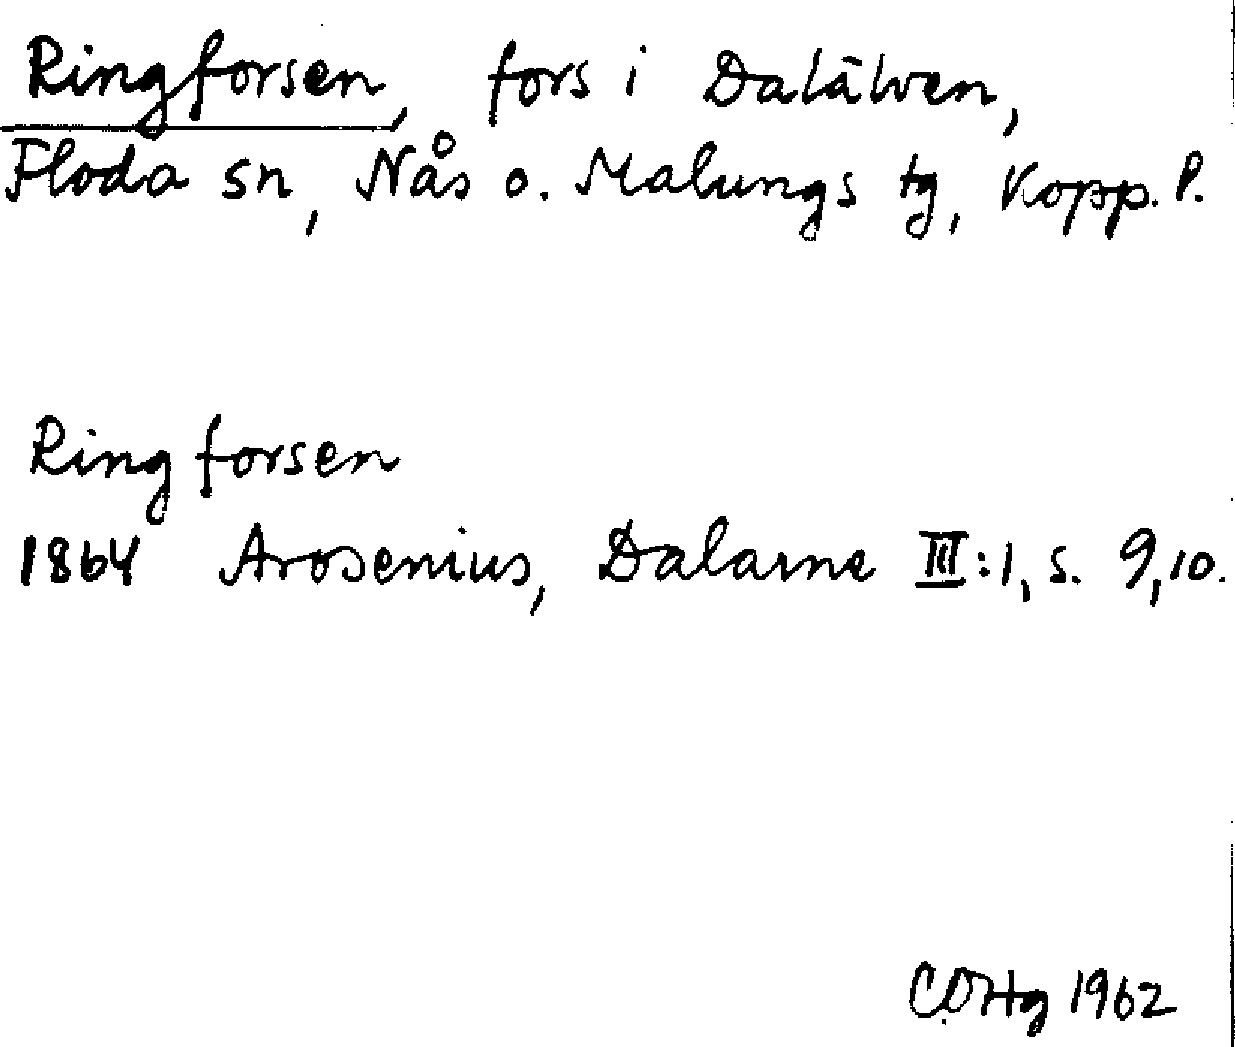 Ringforsen, fors i Dalälven,
Floda sn, Nås o. Malungs tg, Kopp. l.
Ringforsen
1864 Arosenius, Dalarne III:1, s. 9,10.
1962